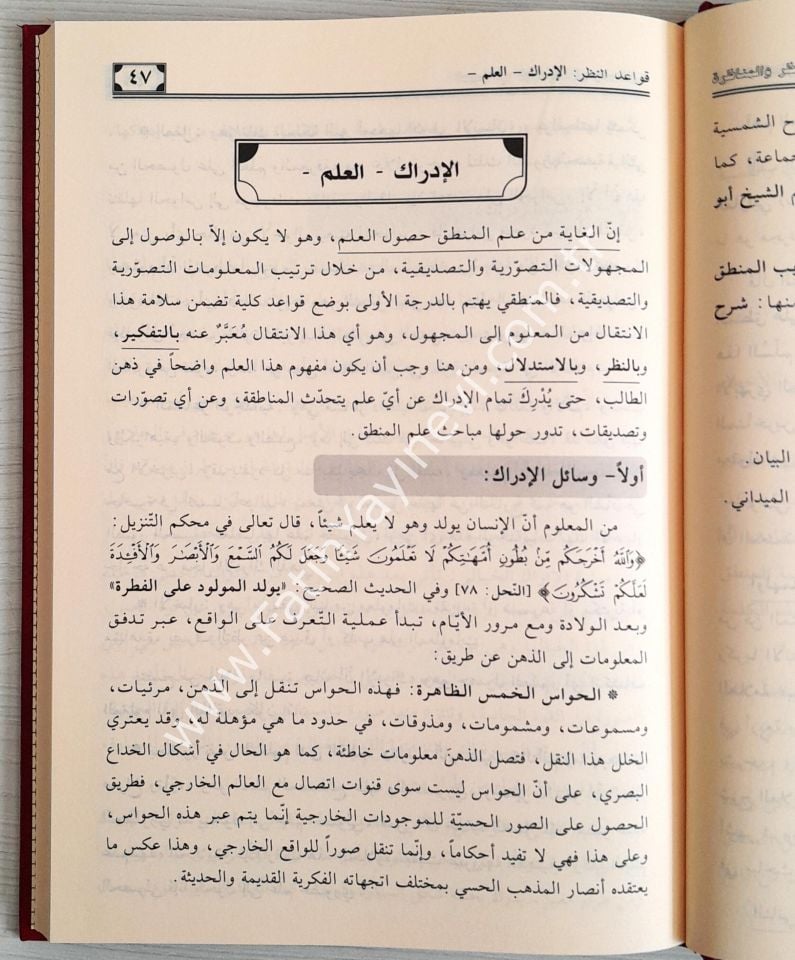 قواعد النظر: الإدراك - العلم -
٤٧
الإدراك - العلم -
إنّ الغاية من علم المنطق حصول العلم، وهو لا يكون إلاّ بالوصول إلى
المجهولات التصوّرية والتصديقية، من خلال ترتيب المعلومات التصوّرية
والتصديقية، فالمنطقي يهتم بالدرجة الأولى بوضع قواعد كلية تضمن سلامة هذا
الانتقال من المعلوم إلى المجهول، وهو أي هذا الانتقال مُعَبَّرٌ عنه بالتفكير،
وبالنظر، وبالاستدلال، ومن هنا وجب أن يكون مفهوم هذا العلم واضحاً في ذهن
الطالب، حتى يُدْرِكَ تمام الإدراك عن أيّ علم يتحدّث المناطقة، وعن أي تصوّرات
وتصديقات، تدور حولها مباحث علم المنطق.
أولاً- وسائل الإدراك:
من المعلوم أنّ الإنسان يولد وهو لا يعلم شيئاً، قال تعالى في محكم التنزيل:
﴿وَٱللَّهُ أَخْرَجَكُم مِّنۢ بُطُونِ أُمَّهَٰتِكُمْ لَا تَعْلَمُونَ شَيْئًا وَجَعَلَ لَكُمُ ٱلسَّمْعَ وَٱلْأَبْصَٰرَ وَٱلْأَفْـِٔدَةَ
لَعَلَّكُمْ تَشْكُرُونَ﴾ [النّحل: ٧٨] وفي الحديث الصحيح: «يولد المولود على الفطرة»
وبعد الولادة ومع مرور الأيّام، تبدأ عملية التعرف على الواقع، عبر تدفق
المعلومات إلى الذهن عن طريق:
* الحواس الخمس الظاهرة: فهذه الحواس تنقل إلى الذهن، مرئيات،
ومسموعات، ومشمومات، ومذوقات، في حدود ما هي مؤهلة له، وقد يعتري
الخلل هذا النقل، فتصل الذهنَ معلومات خاطئة، كما هو الحال في أشكال الخداع
البصري، على أنّ الحواس ليست سوى قنوات اتصال مع العالم الخارجي، فطريق
الحصول على الصور الحسيّة للموجودات الخارجية إنّما يتم عبر هذه الحواس،
وعلى هذا فهي لا تفيد أحكاماً، وإنّما تنقل صوراً للواقع الخارجي، وهذا عكس ما
يعتقده أنصار المذهب الحسي بمختلف اتجهاته الفكرية القديمة والحديثة.
والمناظرة
ح الشمسية
جماعة، كما
م الشيخ أبو
يب المنطق
منها: شرح
البيان.
الميداني.
www.fatihyayinevi.com.tr